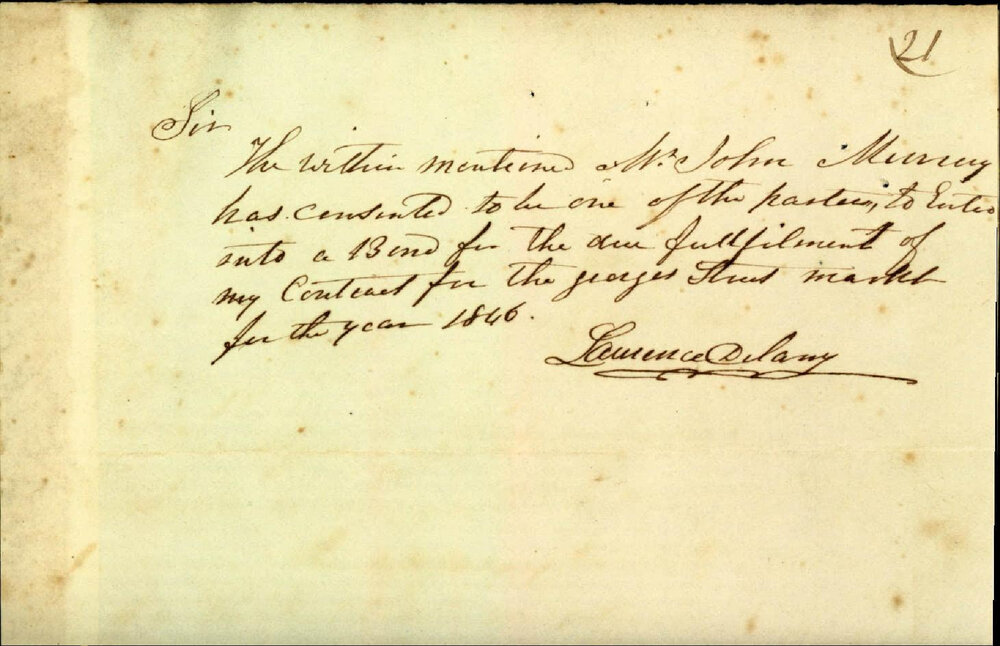 21
Sir
The within mentioned Mr. John Murray
has consented to be one of the parties, to Enter
into a Bond for the due fullfilment of
my Contract for the georges Street market
for the year 1846.
Laurence Delany